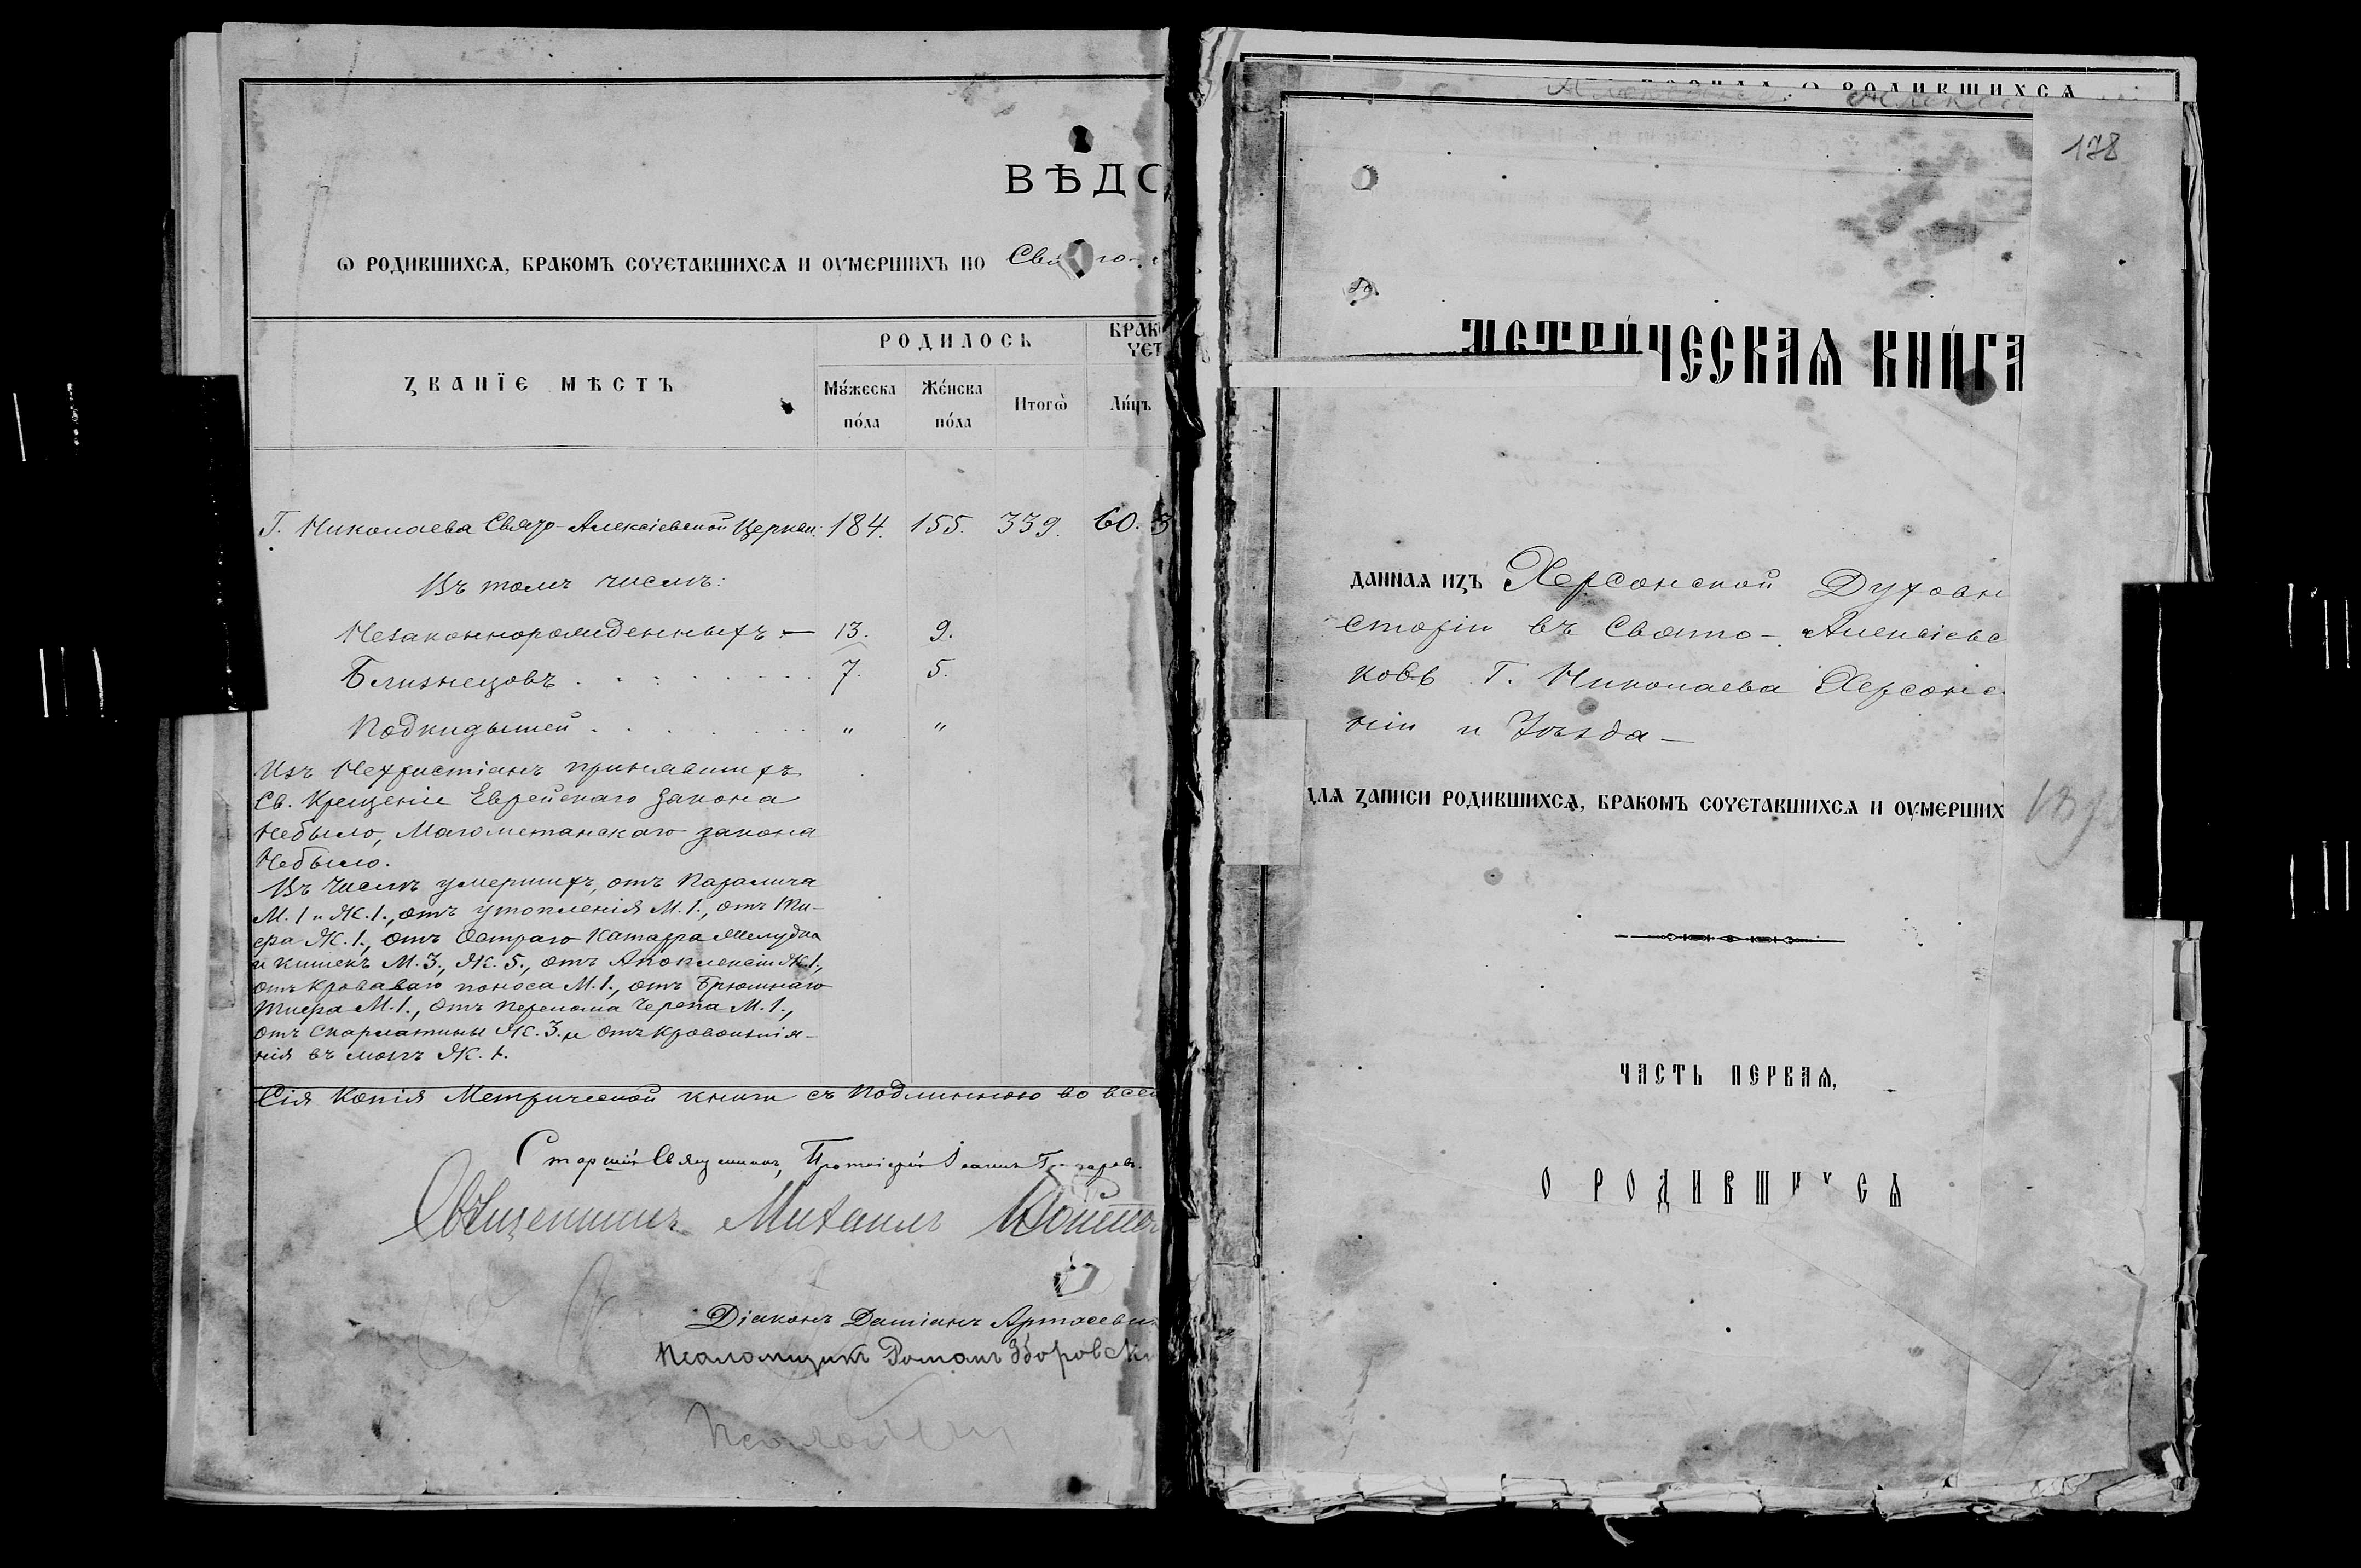 ВѢДО
Ѡ РОДИВШИХСЯ, БРАКОМЪ СОЧЕТАВШИХСЯ И ОУМЕРШИХЪ ПО
ЗВАНЇЕ МѢСТЪ
РОДИЛОСЬ
БРАК
ЧЕТ
Мꙋ́жеска по́ла
Же́нска по́ла
Итогѡ̀
Ли́цъ
Г. Николаева Свято-Алексіевской Церкви: 184. 155. 339. 60. 3
Въ томъ числѣ:
Незаконнорожденныхъ — 13. 9.
Близнецовъ . . . . . . . 7. 5.
Подкидышей . . . . . . . „ „
Изъ Нехристіанъ принявшихъ
Св. Крещеніе Еврейскаго Закона
Небыло, Магометанскаго закона
Небыло.
Въ Числѣ умершихъ, отъ Паралича
М. 1 и Ж. 1., отъ утопленія М. 1., отъ Ти-
фа Ж. 1., отъ Остраго Катарра Желудка
и кишекъ М. 3., Ж. 5., отъ Апоплексіи Ж. 1.,
отъ Кроваваго поноса М. 1., отъ Брюшнаго
Тифа М. 1., отъ перелома Черепа М. 1.,
отъ Скарлатины Ж. 3. и отъ кровоизлія-
нія въ мозгъ Ж. 1.
Сія Копія Метрической книги съ Подлинною во всем
Старшій Священникъ, Протоіерей Іоаннъ
Священникъ Михаилъ
Діаконъ Даміанъ
Псаломщикъ Романъ Зборовски
О РОДИВШИХСЯ
178
МЕТРИ́ЧЕСКАЯ КНИ́ГА
ДАННАЯ ИЗЪ Херсонской Духовн
сторіи въ Свято-Алексіевс
ковь Г. Николаева Херсонс
ніи и Уѣзда —
ДЛЯ ЗАПИСИ РОДИВШИХСЯ, БРАКОМЪ СОЧЕТАВШИХСЯ И ОУМЕРШИХ
ЧАСТЬ ПЕРВАЯ,
О РОДИВШИХСЯ